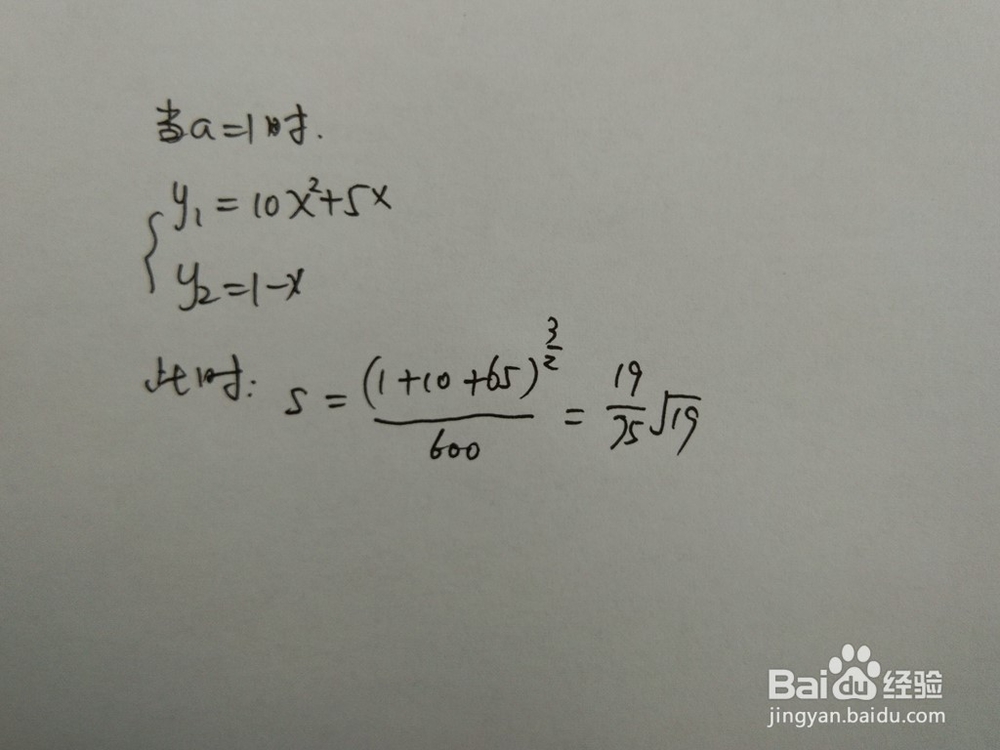 当a=1时.
y₁=10x²+5x
y₂=1-x
此时: S = (1+10+65)^(3/2) / 600 = 19/75 √19
Baidu 经验
jingyan.baidu.com